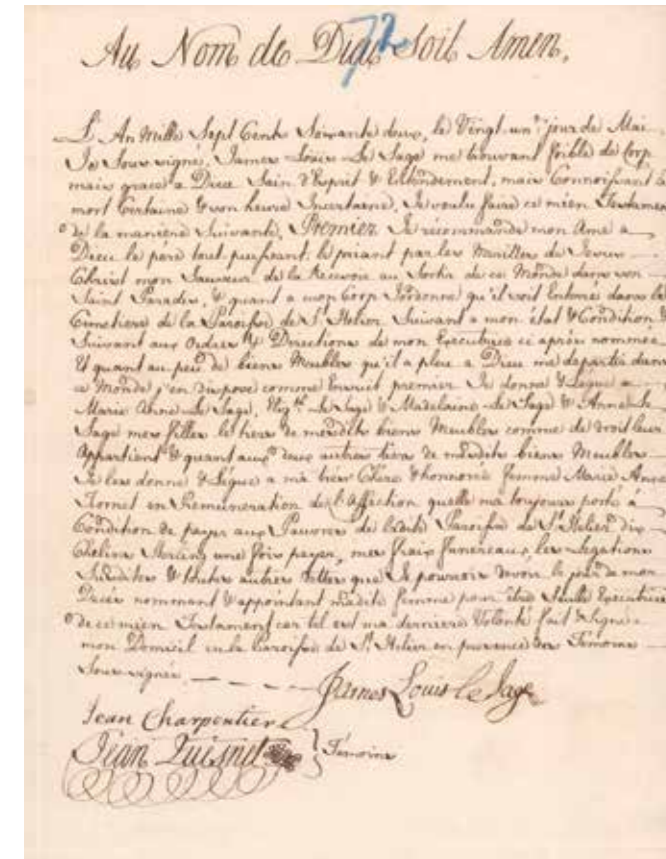 72
Au Nom de Dieu Soit Amen,
L'An Mille Sept Cents Soixante deux, le Vingt-un.e jour de Mai
Je Sous-signé, James Louis Le Sage me trouvant foible de Corp
mais grace a Dieu Sain d'Esprit & Entendement, mais Connoissant la
mort Certaine & son heure Incertaine, Je voulu faire ce mien Testament
de la maniere Suivante, Premier Je récommande mon Ame a
Dieu le pere tout puissant, le priant par les Merittes de Jesus
Christ mon Sauveur de la Recevoir au Sortir de ce Monde dans son
Saint Paradis, & quant a mon Corp J'ordonne qu'il soit Enterré dans le
Cimetiere de la Paroisse de St. Helier Suivant a mon état & Condition &
Suivant aux Ordres & Directions de mon Executrice ci après nommée
Et quant au peu de biens Meubles qu'il a pleu a Dieu me departir dans
ce Monde j'en dispose comme Ensuit premier Je donne & Legue a
Marie Anne Le Sage, Eliz.th Le Sage & Madelaine Le Sage & Anne Le
Sage mes filles le tiers de mesdits biens Meubles comme de droit leur
Appartient & quant aux deux autres tiers de mesdits biens Meubles
Je les donne & Légue a ma trés Chére & honorée femme Marie Anne
Hornet en Remuneration de l'Affection quelle ma toujours porté à
Condition de payer aux Pauvres de ladite Paroisse de St. Helier dix
Chelins Sterling une fois payer, mes fraix funeraux, les Legations
Susdites & toutes autres Dettes que Je pourrois devoir le jour de mon
Decés nommant & appointant madite femme pour être Seulle Executrice
de ce mien Testament car tel est ma derniere Volonté fait & Signé a
mon Domicil en la Paroisse de St. Helier en presence des Temoins
Sous-signés.
James Louis le Sage
Jean Charpentier
Jean
Temoins